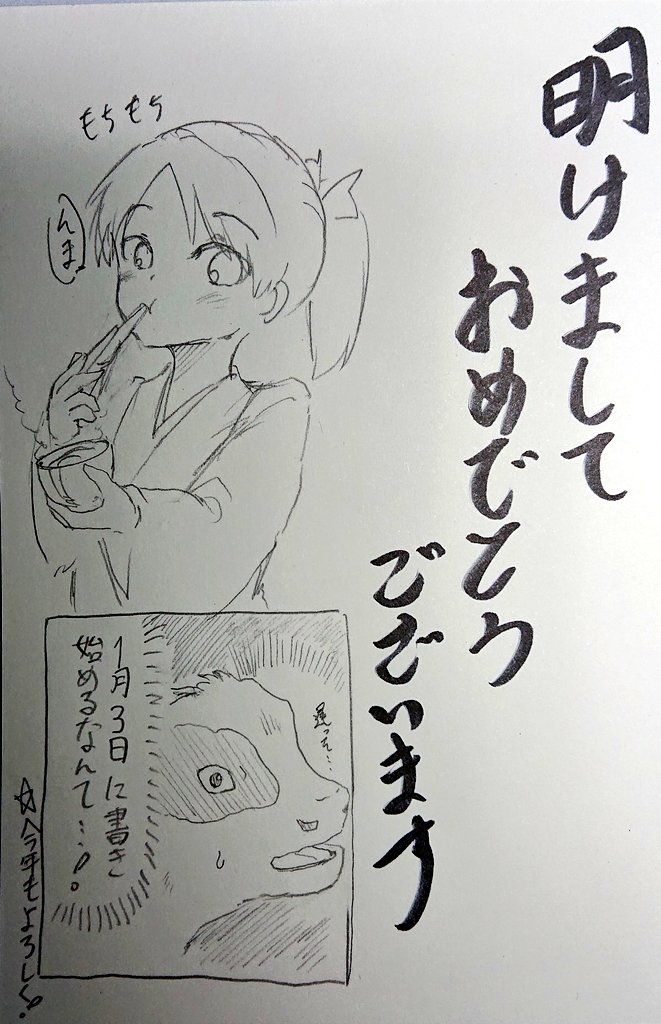 明けまして
おめでとう
ございます
もちもち
んま
遅っそ…
1月3日に書き
始めるなんて…!。
☆今年もよろしく。